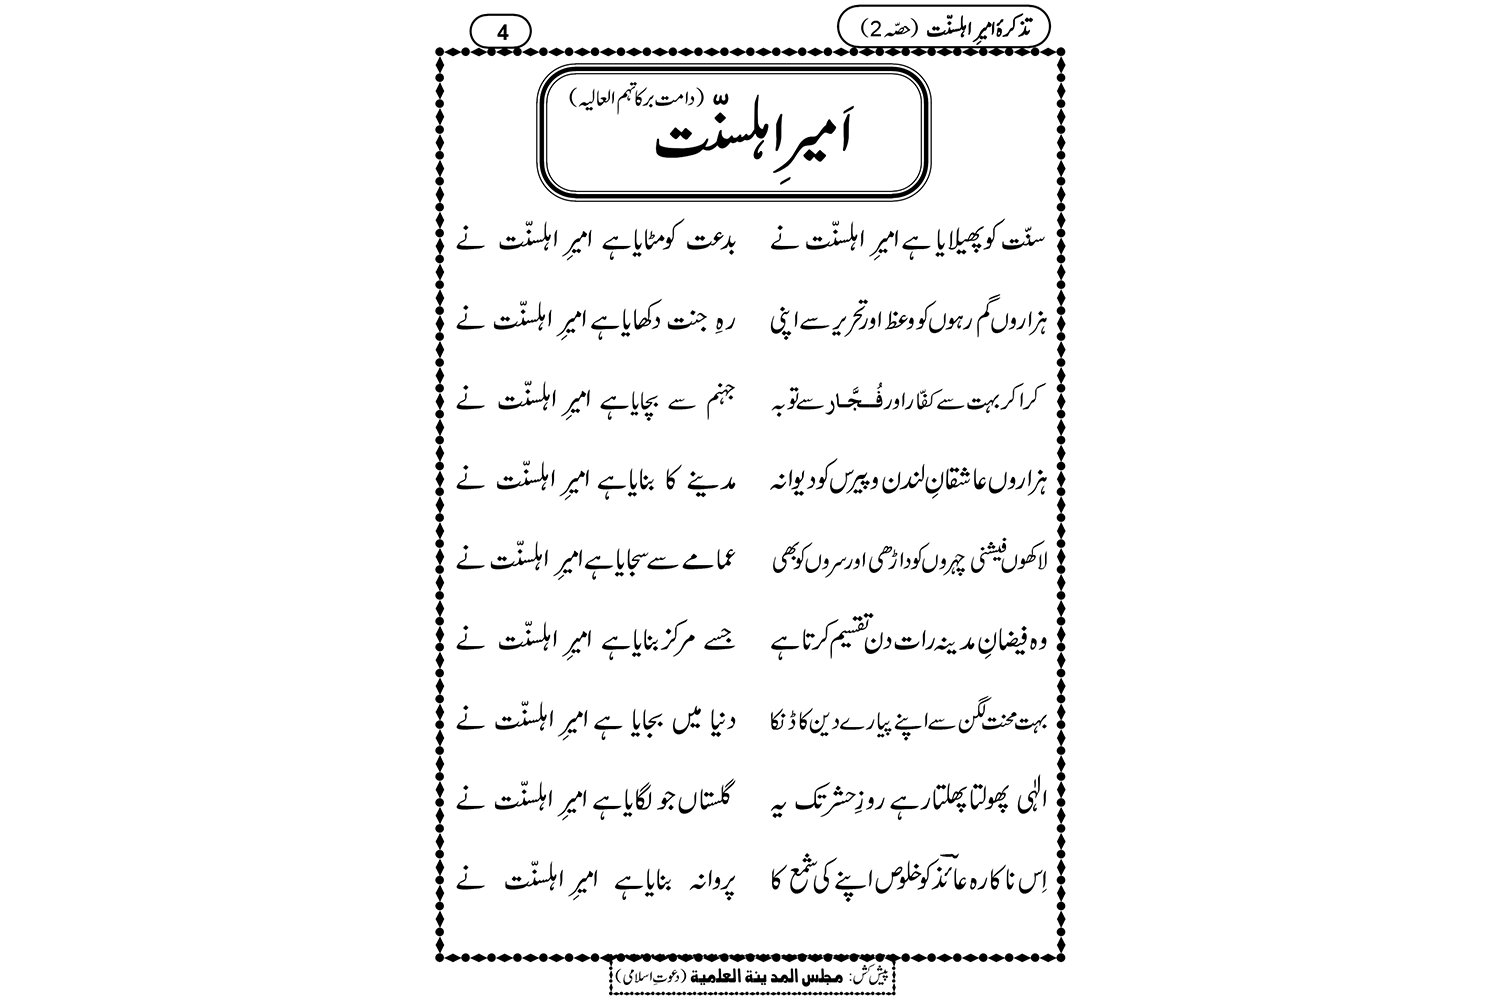 تذکرۂ امیرِ اہلسنّت (حصّہ 2)
4
(دامت برکاتہم العالیہ)
اَمیرِ اہلسنّت
سنّت کو پھیلایا ہے امیرِ اہلسنّت نے بدعت کو مٹایا ہے امیرِ اہلسنّت نے
ہزاروں گم رہوں کو وعظ اور تحریر سے اپنی رہِ جنت دکھایا ہے امیرِ اہلسنّت نے
کرا کر بہت سے کفّار اور فُجَّار سے توبہ جہنم سے بچایا ہے امیرِ اہلسنّت نے
ہزاروں عاشقانِ لندن و پیرس کو دیوانہ مدینے کا بنایا ہے امیرِ اہلسنّت نے
لاکھوں فیشنی چہروں کو داڑھی اور سروں کو بھی عمامے سے سجایا ہے امیرِ اہلسنّت نے
وہ فیضانِ مدینہ رات دن تقسیم کرتا ہے جسے مرکز بنایا ہے امیرِ اہلسنّت نے
بہت محنت لگن سے اپنے پیارے دین کا ڈنکا دنیا میں بجایا ہے امیرِ اہلسنّت نے
الٰہی پھولتا پھلتا رہے روزِ حشر تک یہ گلستاں جو لگایا ہے امیرِ اہلسنّت نے
اِس ناکارہ عائذ کو خلوص اپنے کی شمع کا پروانہ بنایا ہے امیرِ اہلسنّت نے
پیش کش: مجلس المدینة العلمیة (دعوتِ اسلامی)